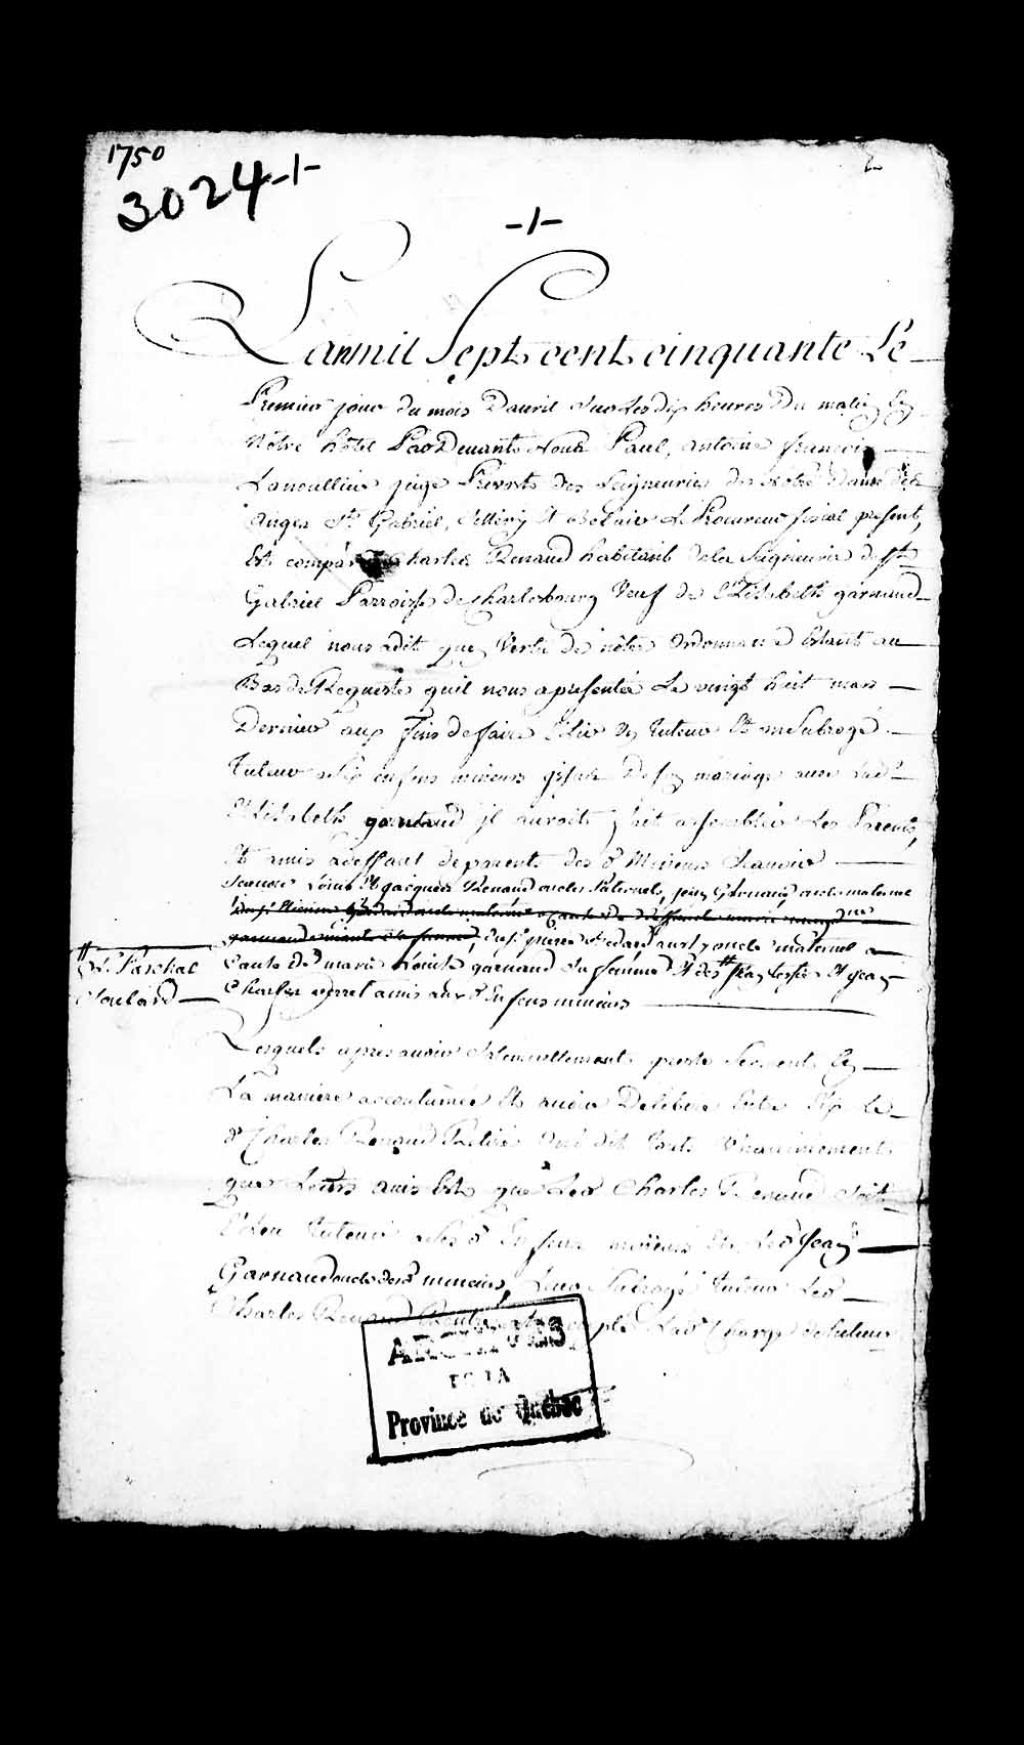 1750
2
3024-1-
-1-
Lanmil Sept cent cinquante Le
Premier jour du mois Davril Sur les dix heures Du matin En
Notre hôtel Pardevant Nous Paul, antoine françois
Lanoullier juge Prevost des Seigneuries de Notre Dame des
Anges St Gabriel, Sillery Et Le Procureur fiscal present,
Est comparu Charles Renaud habitant dela Seigneurie de St
Gabriel Parroisse de charlesbourg Veuf de Elisabeth garnaud
Lequel nous adit quen Vertu de nôtre ordonnance Estant au
Bas de Requeste quil nous apresentée Le vingt huit mars
Dernier aux fins defaire Elire un tuteur Et un Subrogé
tuteur enfans mineurs issus de son mariage avec lade
Elisabeth garnaud il auroit fait assembler Les Parents,
Et amis adeffaut deparents des d Mineurs Scavoir
Louis Et jacques Renaud oncles Paternels, jean Garnaud oncle maternel
garnaud oncle maternel a
cause de marie Louise garnaud Sa femme Et des jean Et jean
Charles verret amis aux d Enfans mineurs
Et Paschal
Soulard
Lesquels apres avoir Serment En
La maniere accoutumée Et avoir Deliberé Entre Eux le
d Charles Renaud Retiré ont dit tous Unanimement
que Leurs avis Est que Led Charles Renaud Soit
Eleu tuteur ases d Enfans mineurs Et Led jean
Garnaud oncle desd mineurs, Leur Subrogé tuteur Led
Charles Renaud Lad Charge de tuteur
ARCHIVES
DE LA
Province de Québec